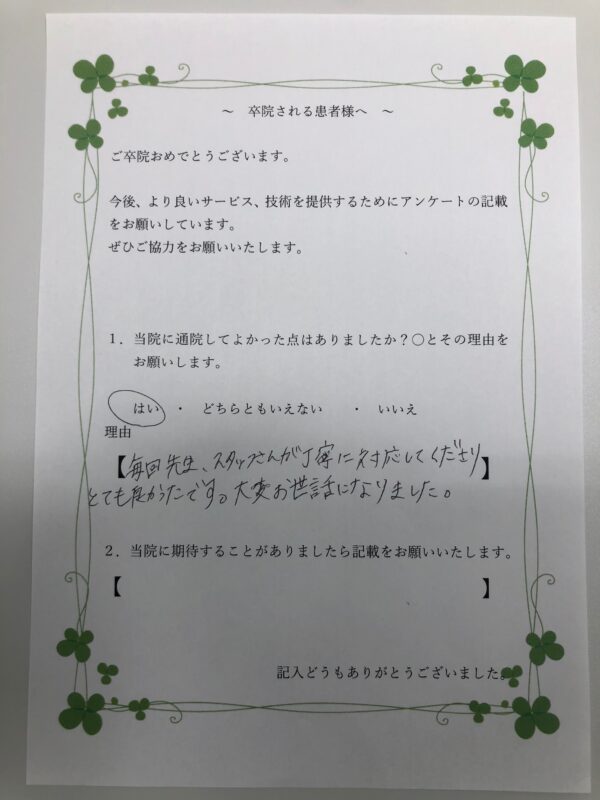 ～　卒院される患者様へ　～
ご卒院おめでとうございます。
今後、より良いサービス、技術を提供するためにアンケートの記載
をお願いしています。
ぜひご協力をお願いいたします。
１．当院に通院してよかった点はありましたか？〇とその理由を
お願いします。
はい　・　どちらともいえない　・　いいえ
理由
【毎回先生、スタッフさんが丁寧に対応してくださり】
とても良かったです。大変お世話になりました。
２．当院に期待することがありましたら記載をお願いいたします。
【　】
記入どうもありがとうございました。